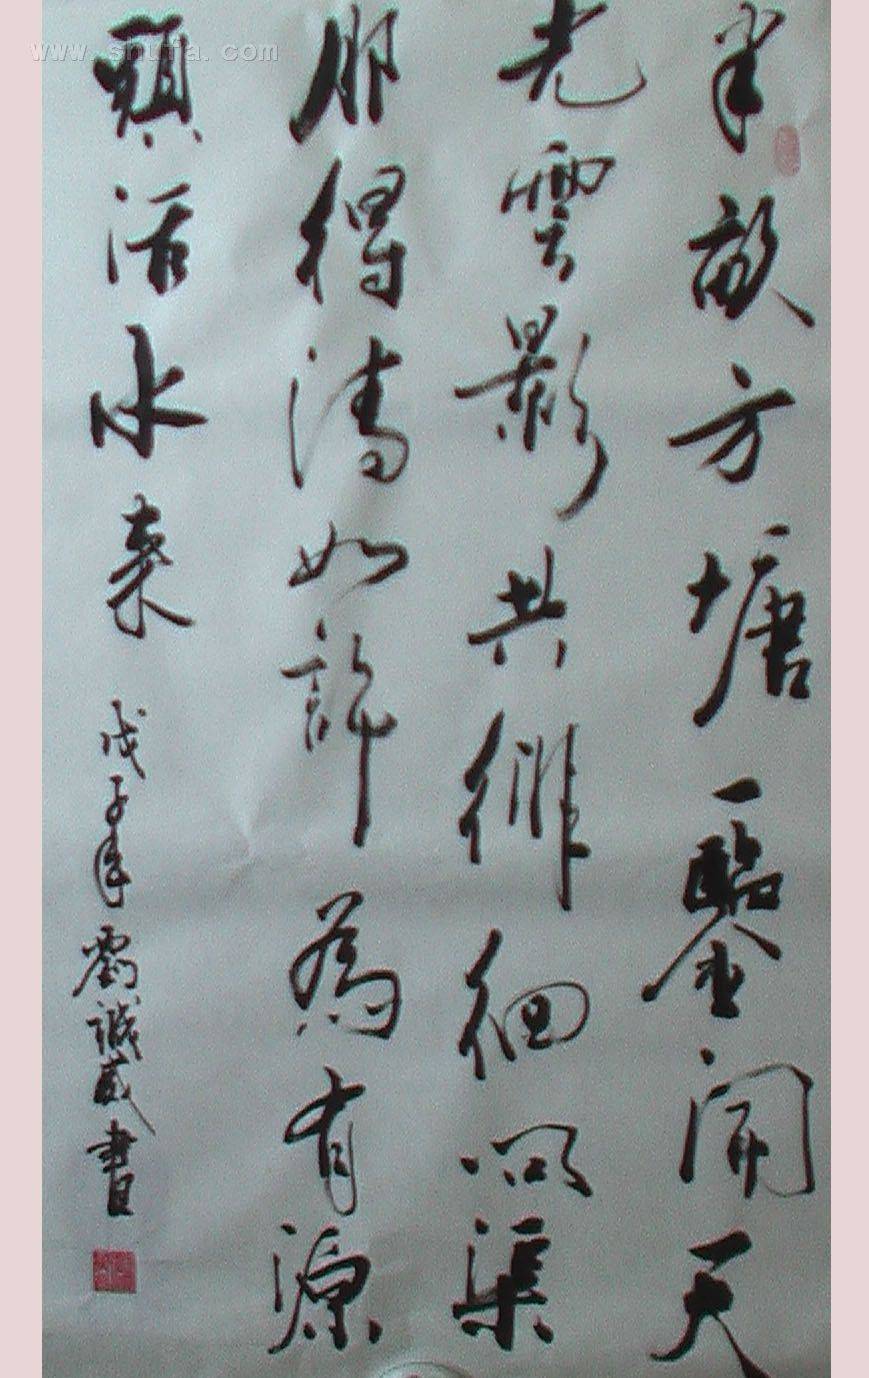 半畝方塘一鑒開天
光雲影共徘徊問渠
那得清如許為有源
頭活水來
戊子年劉誠
書
www.shufa.com